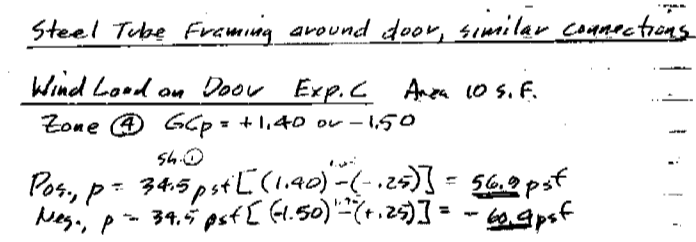 Steel Tube Framing around door, similar connections
Wind Load on Door Exp. C Area 10 S.F.
Zone ④ GCp = +1.40 or -1.50
Sh. ①
Pos., p = 34.5 psf [(1.40) - (-.25)] = 56.9 psf
Neg., p = 34.5 psf [(-1.50) - (+.25)] = - 60.4 psf